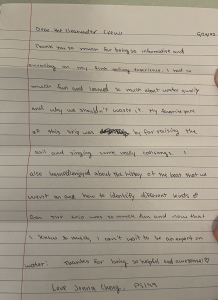 Dear the Clearwater Crew, 
Thank you so much for being so informative and
exciting on my first sailing experience. I had so
much fun and learned so much about water quality
and why we shouldn't waste it. My favorite part
of this trip was by far raising the
sail and singing some really songs. I
also learned about the history of the boat that we
went on and how to identify different kinds of
fish. Our trip was so much fun and now that
I know so much, I can't wait to be an expert on
water. Thanks for being so helpful and awesome!
Love Cheng,